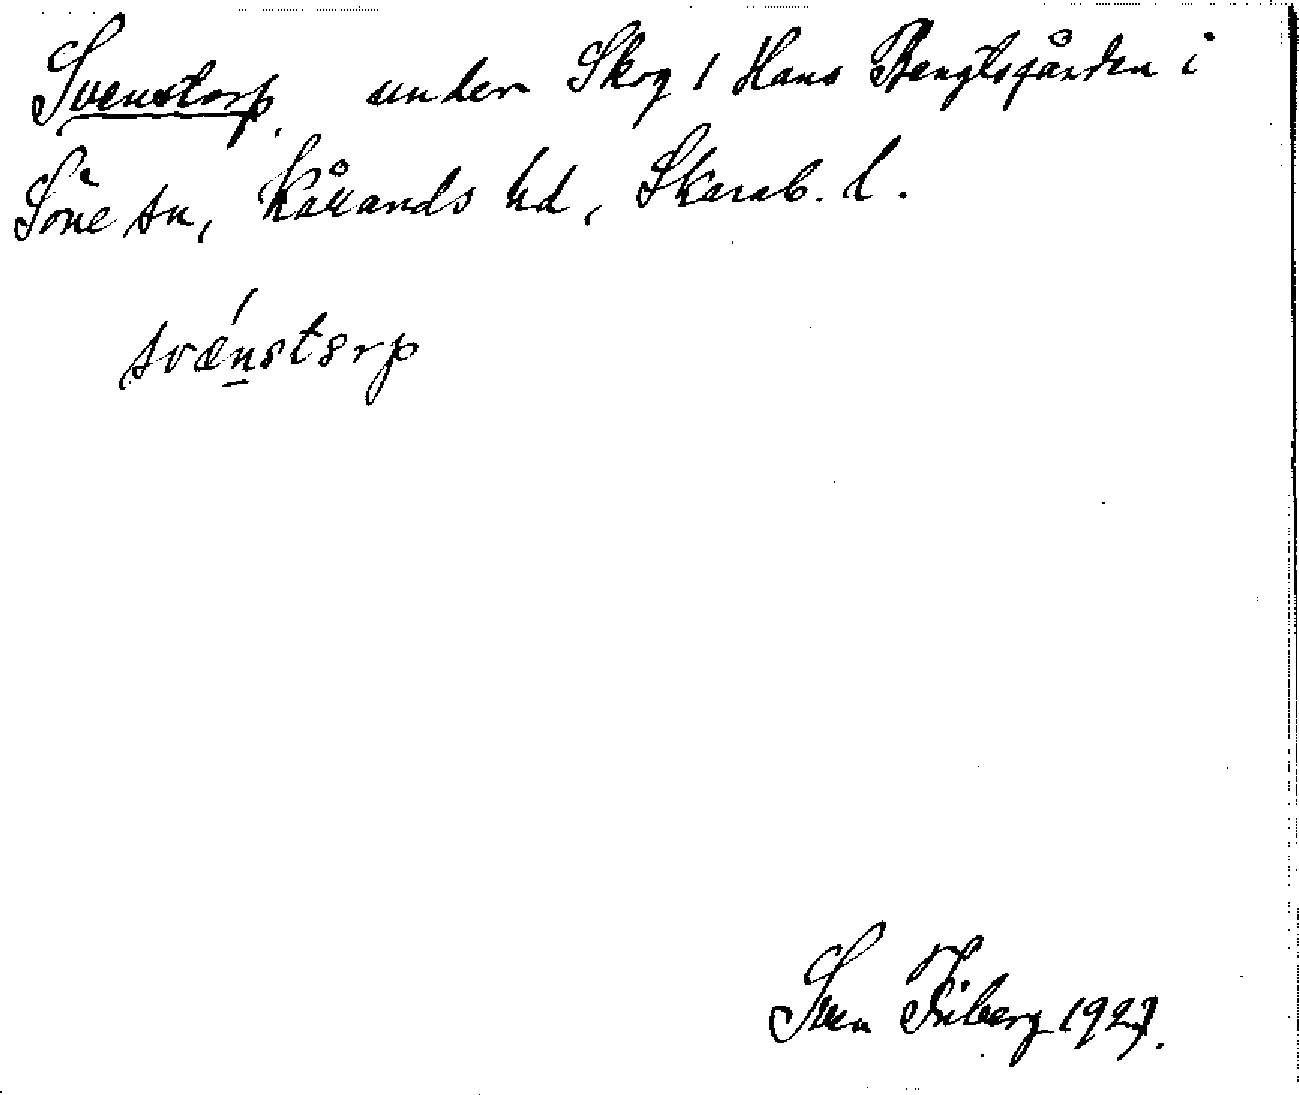 Svenstorp under Skog 1 Hans Bengtsgården i
Söne sn, Kållands hd, Skarab. l.
svǽn̲storp
Sven Friberg 1927.